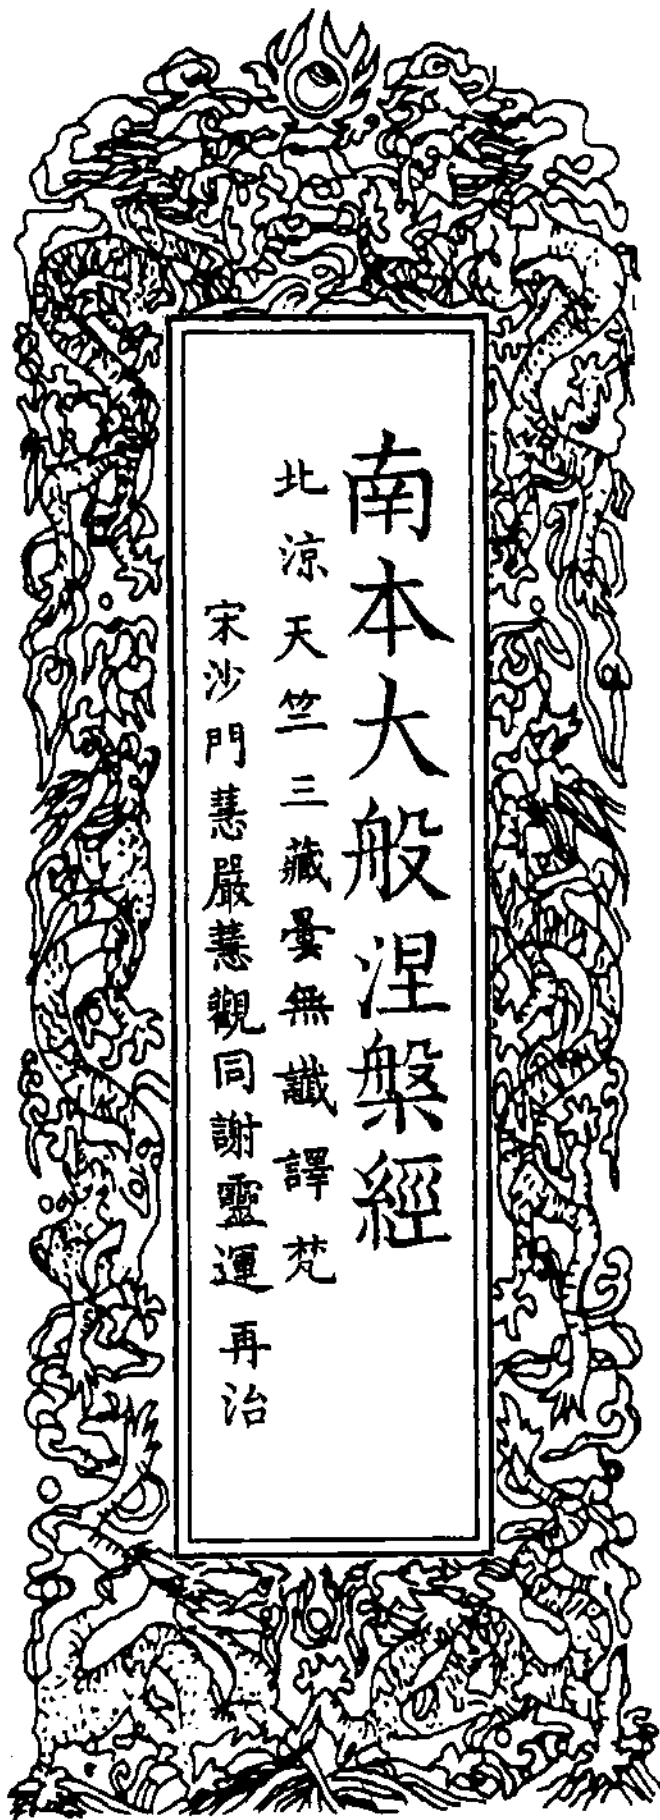 南本大般涅槃經
北涼天竺三藏曇無讖譯梵
宋沙門慧嚴慧觀同謝靈運再治